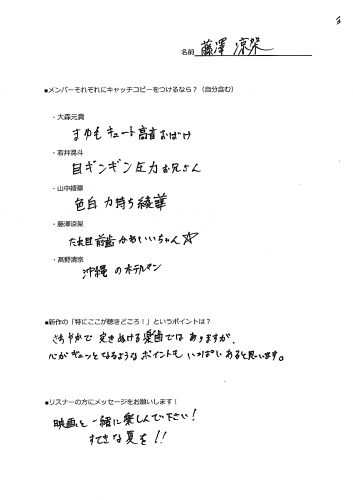 名前 藤澤 涼架
■メンバーそれぞれにキャッチコピーをつけるなら？（自分含む）
・大森元貴
まゆもキュート高音おばけ
・若井滉斗
目ギンギン圧力お兄さん
・山中綾華
色白力持ち綾華
・藤澤涼架
たれ目前歯かわいいちゃん☆
・髙野清宗
沖縄のホテルマン
■新作の「特にここが聴きどころ！」というポイントは？
さわやかで突きぬける楽曲ではありますが、
心がギュッとなるようなポイントもいっぱいあると思います。
■リスナーの方にメッセージをお願いします！
映画と一緒に楽しんで下さい！
すてきな夏を！！